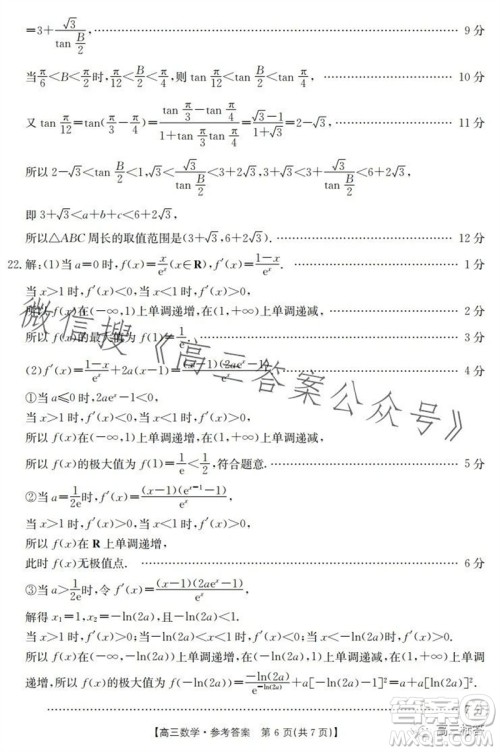 =3+√3/tan(B/2). …… 9分
当π/6<B<π/2时,π/12<B/2<π/4,则tan π/12<tan B/2<tan π/4, …… 10分
又tan π/12=tan(π/3-π/4)=(tan π/3-tan π/4)/(1+tan π/3 tan π/4)=(√3-1)/(1+√3)=2-√3, …… 11分
所以2-√3<tan B/2<1,√3<√3/tan(B/2)<3+2√3,
即3+√3<a+b+c<6+2√3,
所以△ABC周长的取值范围是(3+√3,6+2√3). …… 12分
22.解:(1)当a=0时,f(x)=x/e^x(x∈R),f′(x)=(1-x)/e^x. …… 1分
当x>1时,f′(x)<0,当x<1时,f′(x)>0,
所以f(x)在(-∞,1)上单调递增,在(1,+∞)上单调递减, …… 2分
所以f(x)的最大值为f(1)=1/e. …… 3分
(2)f′(x)=(1-x)/e^x+2a(x-1)= …… 4分
①当a≤0时,2ae^x-1<0,
当x>1时,f′(x)<0,当x<1时,f′(x)>0,
所以f(x)在(-∞,1)上单调递增,在(1,+∞)上单调递减,
所以f(x)的极大值为f(1)=1/e<1/2,符合题意. …… 5分
②当a=1/2e时,f′(x)=(x-1)(e^(x-1)-1)/e^x,
当x>1时,f′(x)>0,当x<1时,f′(x)>0,
所以f(x)在R上单调递增,
此时f(x)无极值点. …… 6分
③当a>1/2e时,f′(x)=(x-1)(2ae^x-1)/e^x,
解得x₁=1,x₂=-ln(2a),且-ln(2a)<1.
当x>1时,f′(x)>0,当-ln(2a)<x<1时,f′(x)<0,当x<-ln(2a)时,f′(x)>0.
所以f(x)在(-∞,-ln(2a))上单调递增,在(-ln(2a),1)上单调递减,在(1,+∞)上单调递增,
所以f(x)的极大值为f(-ln(2a))=-ln(2a)/e^(-ln(2a))+a[-ln(2a)-1]²=a[-ln²(2a)+1],
…… 7分
【高三数学·参考答案 第6页(共7页)】
微信搜《高三答案公众号》